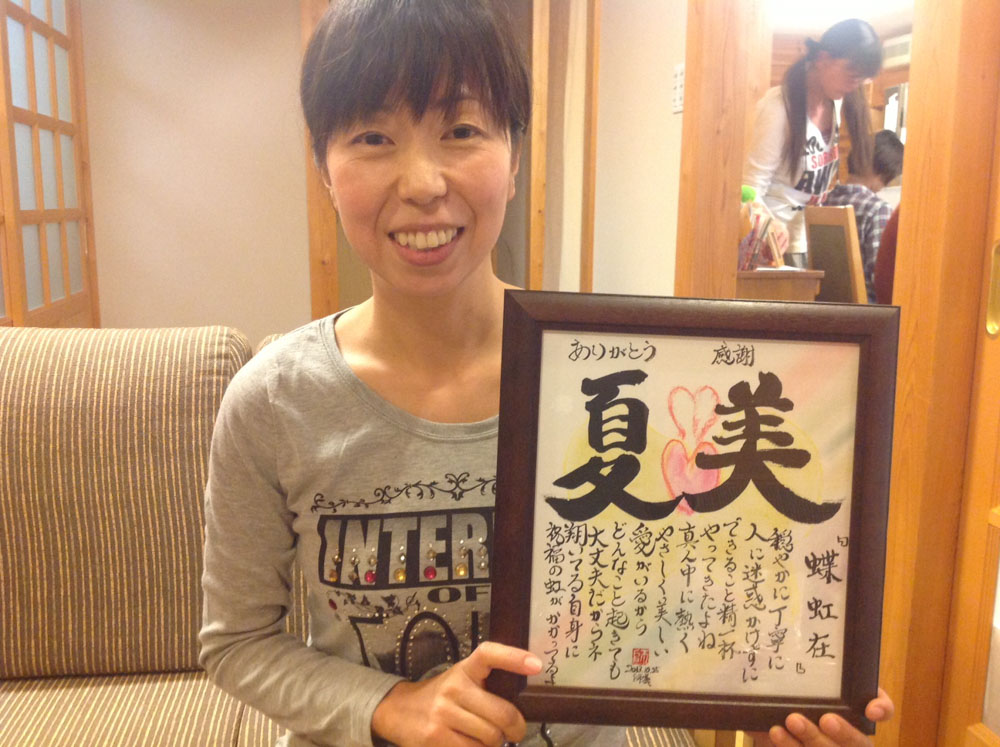 ありがとう　感謝
夏美
『蝶虹在』
穏やかに丁寧に
人に迷惑かけずに
できること精一杯
やってきたよね
真ん中に熱く
やさしく美しい
愛がいるから
どんなこと起きても
大丈夫だからネ
翔いてる自身に
祝福の虹がかかってるよ
INTER
OF